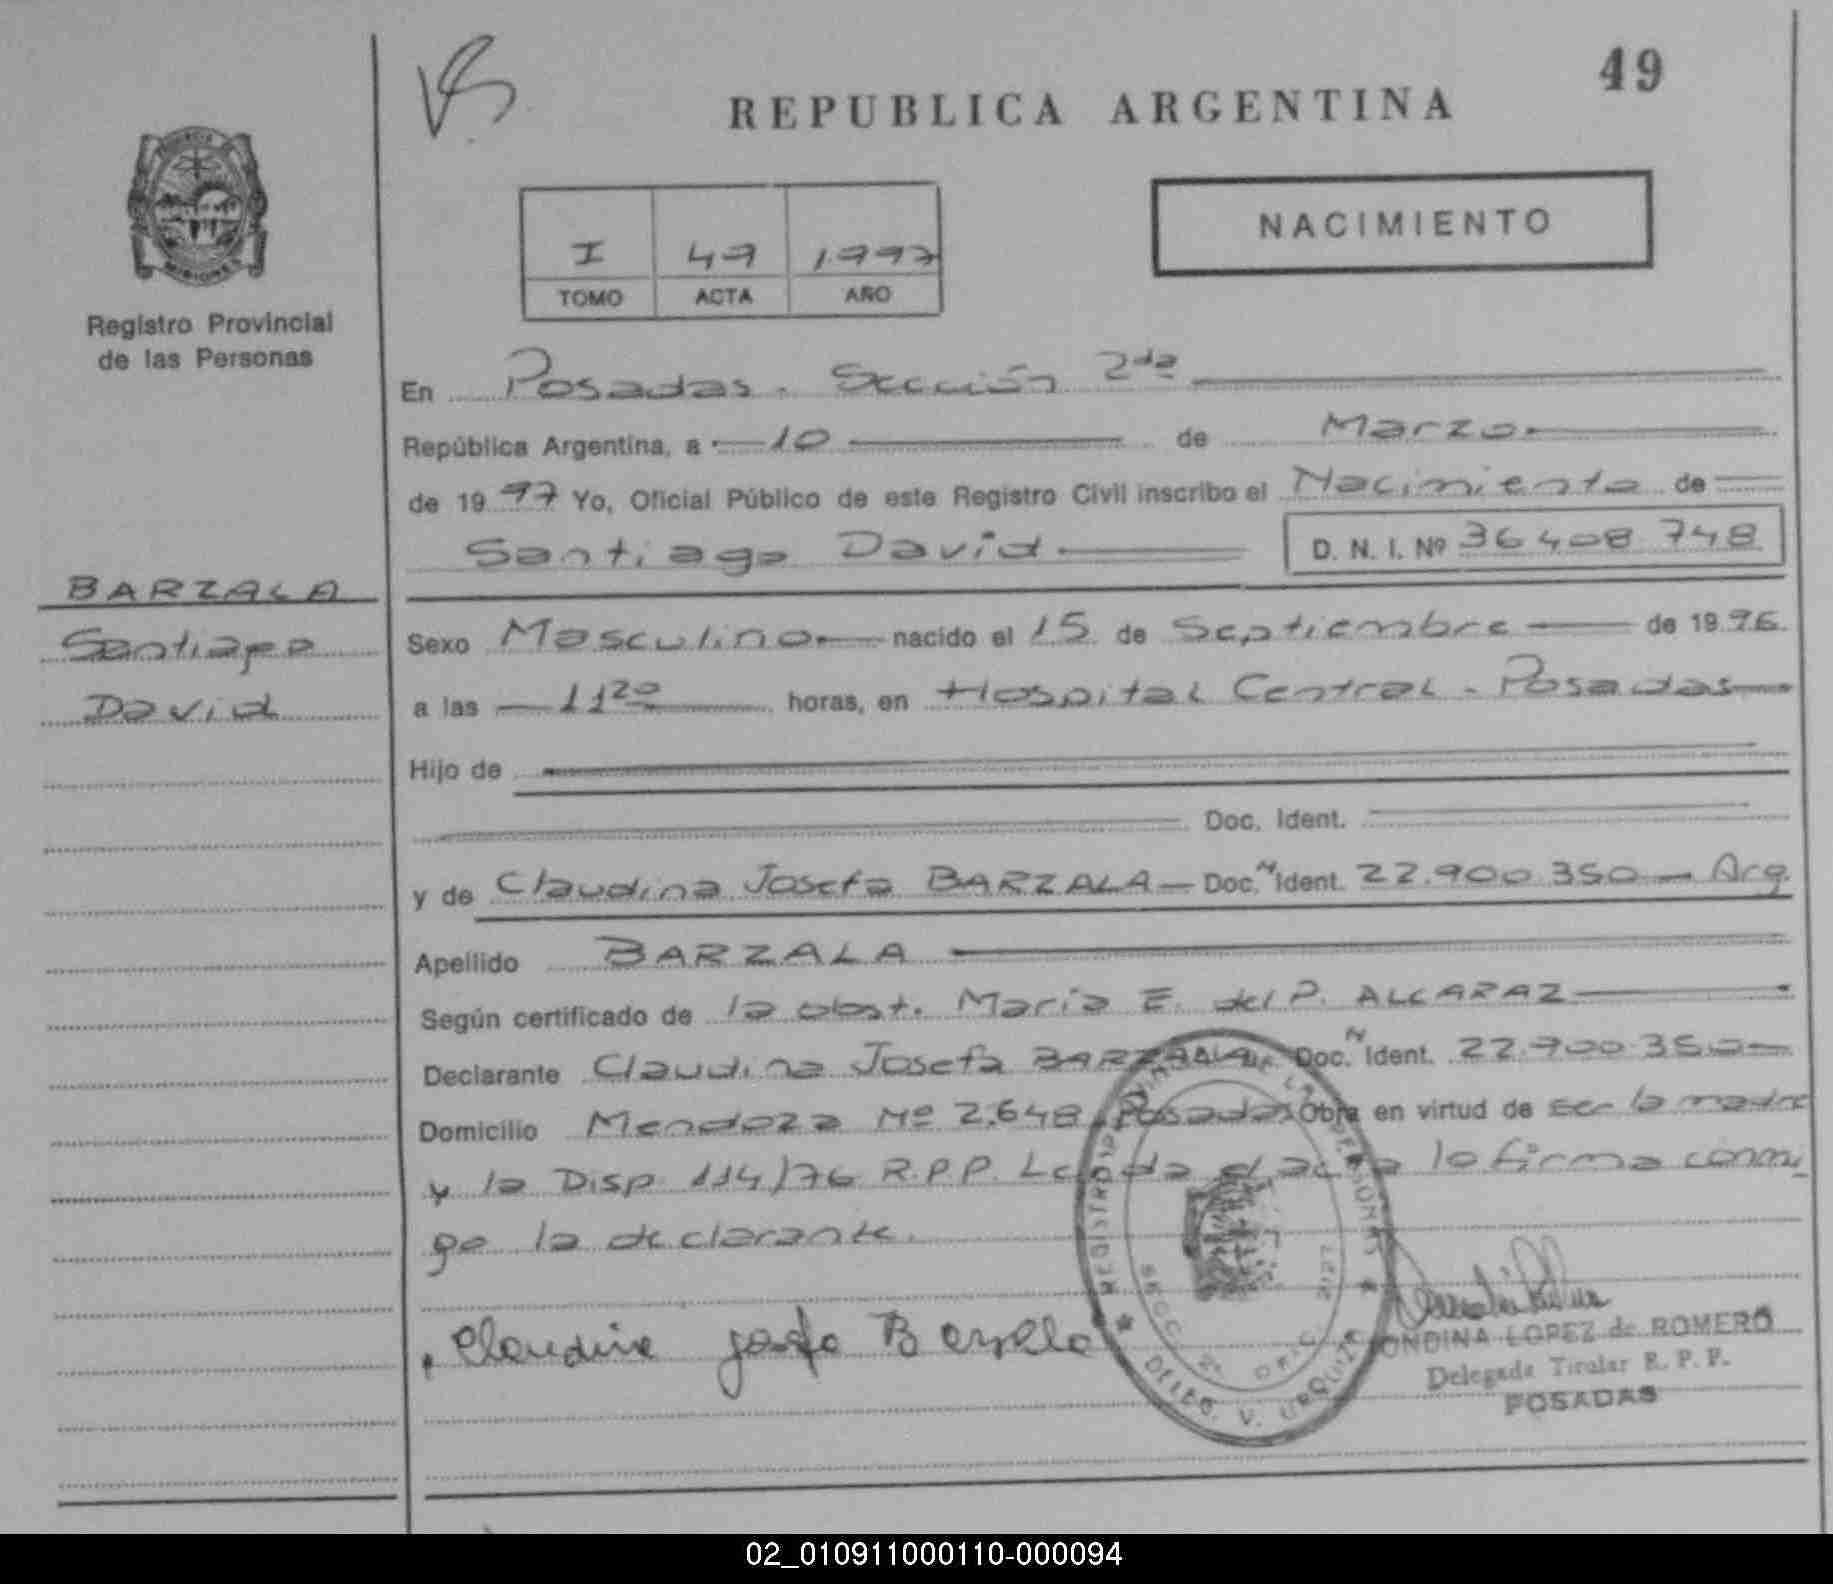 49
REPUBLICA ARGENTINA
NACIMIENTO
I 49 1.997
TOMO ACTA AÑO
MISIONES
Registro Provincial
de las Personas
En Posadas. Sección 2da
República Argentina, a 10 de Marzo.
de 1997 Yo, Oficial Público de este Registro Civil inscribo el Nacimiento de
Santiago David D. N. I. Nº 36 408 748
BARZALA
Santiago
David
Sexo Masculino. nacido el 15 de Septiembre de 1996.
a las 11 20 horas, en Hospital Central - Posadas
Hijo de
Doc. Ident.
y de Claudina Josefa BARZALA - Doc. N Ident. 22.900 350 - Arg.
Apellido BARZALA
Según certificado de la obst. Maria E. del P. ALCARAZ
Declarante Claudina Josefa BARZALA Doc. N Ident. 22.900 350
Domicilio Mendoza Nº 2.648 Posadas Obra en virtud de ser la madre
y la Disp 114/76 R.P.P. Leida el acta la firma conmi
go la declarante.
Claudina Josefa Barzala
REGISTRO PROVINCIAL DE LAS PERSONAS
SECC. 2ª OFIC.
DELEG. V. URQUIZA
ONDINA LOPEZ de ROMERO
Delegada Titular R. P. P.
POSADAS
02_010911000110-000094